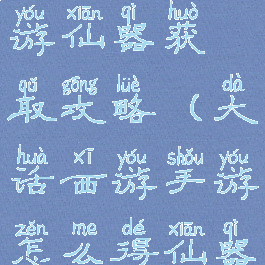 yóu xiān qì huò
游仙器获
qǔ gōng lüè dà
取攻略（大
huà xī yóu shǒu yóu
话西游手游
zěn me dé xiān qì
怎么得仙器